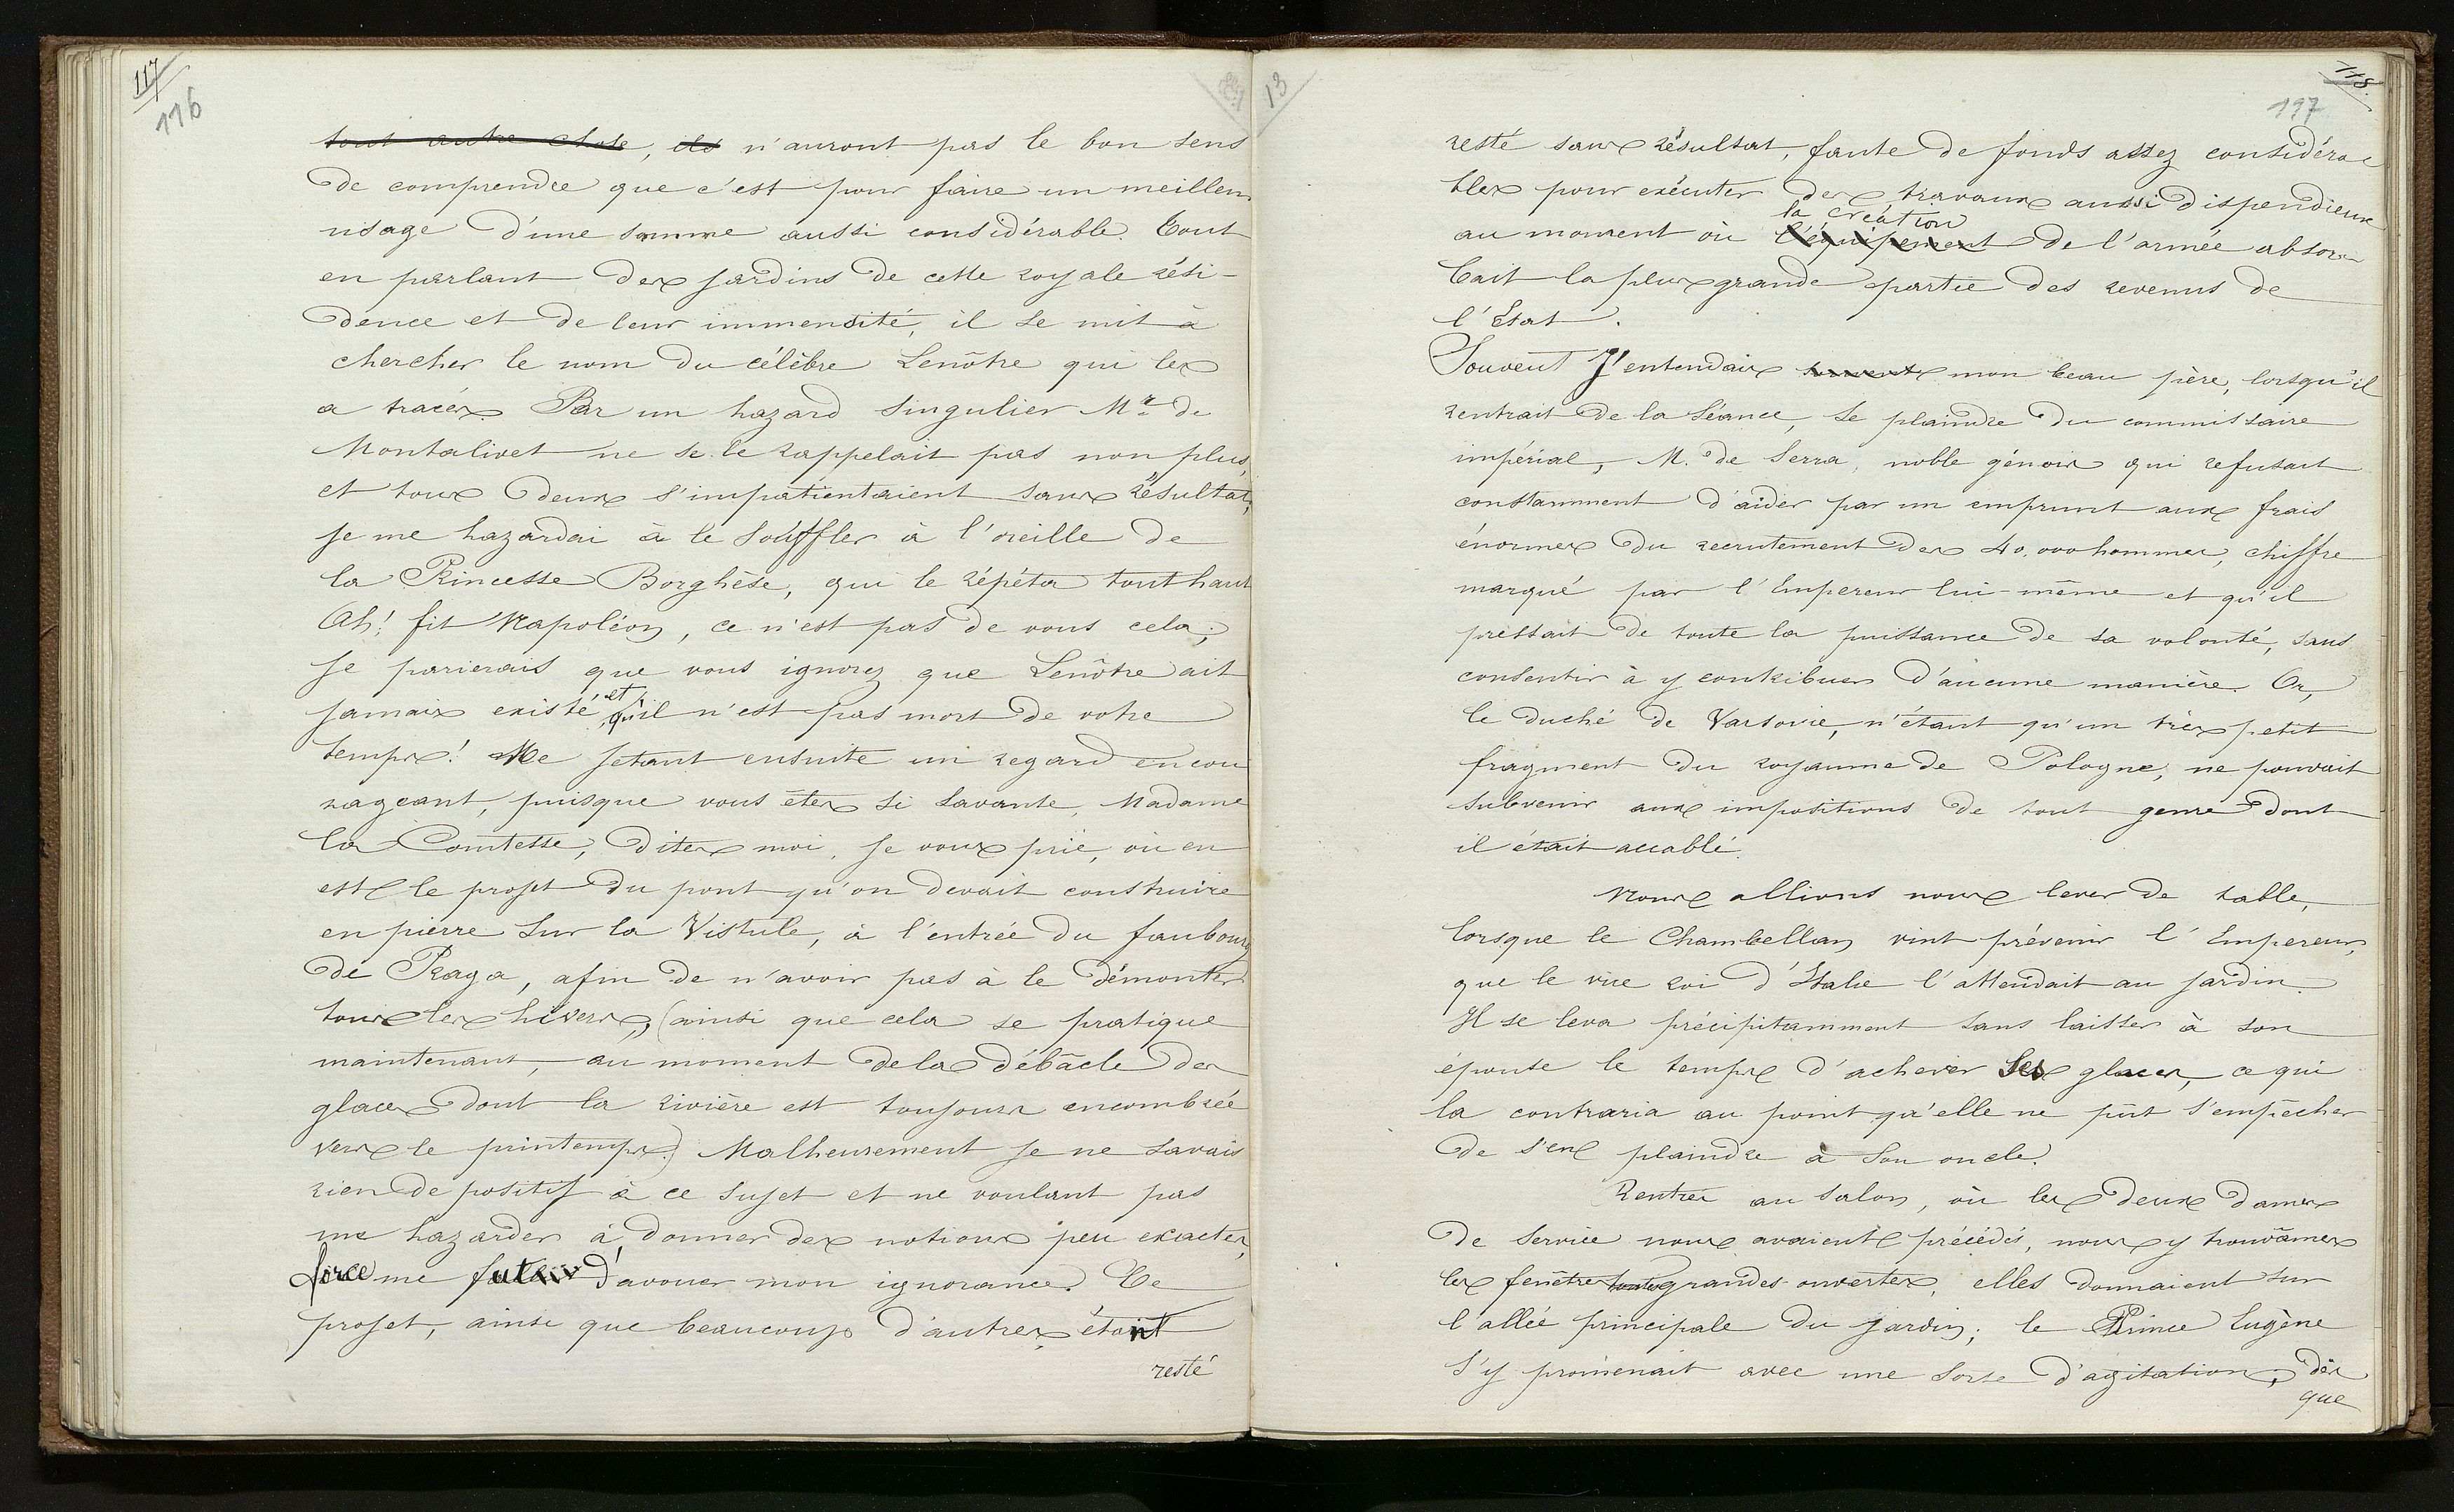 117
116
tout autre chose, ils n'auront pas le bon sens
de comprendre que c'est pour faire un meilleur
usage d'une somme aussi considérable. Tout
en parlant des jardins de cette royale rési-
dence et de leur immensité, il se mit à
chercher le nom du célèbre Lenôtre qui les
a tracés. Par un hazard singulier Mr. de
Montalivet ne se le rappelait pas non plus,
et tous deux s'impatientaient sans résultat,
je me hazardai à le souffler à l'oreille de
la Princesse Borghèse, qui le répéta tout haut
Ah! fit Napoléon, ce n'est pas de vous cela;
je parierais que vous ignorez que Lenôtre ait
jamais existé, et qu'il n'est pas mort de votre
temps! Me jetant ensuite un regard encou
rageant, puisque vous êtes si savante, Madame
la Comtesse, dites moi, je vous prie, où en
est le projet du pont qu'on devait construire
en pierre sur la Vistule, à l'entrée du faubourg
de Praga, afin de n'avoir pas à le démonter
tous les hivers, (ainsi que cela se pratique
maintenant, au moment de la débâcle des
glaces dont la rivière est toujours encombrée
vers le printemps.) Malheureusement je ne savais
rien de positif à ce sujet et ne voulant pas
me hazarder à donner des notions peu exactes,
force me fut d'avouer mon ignorance. Ce
projet, ainsi que beaucoup d'autres, étoint
resté
13
118.
117
resté sans résultat, faute de fonds assez considéra
bles pour exécuter des travaux aussi dispendieux
la création
au moment où l'équipement de l'armée absor
bait la plus grande partie des revenus de
l'Etat.
Souvent J'entendais souvent mon beau père, lorsqu'il
rentrait de la séance, se plaindre du commissaire
impérial, M. de Serra, noble génois qui refusait
constamment d'aider par un emprunt aux frais
énormes du recrutement des 40,000 hommes, chiffre
marqué par l'Empereur lui-même et qu'il
pressait de toute la puissance de sa volonté, sans
consentir à y contribuer d'aucune manière. Or,
le duché de Varsovie, n'étant qu'un très petit
fragment du royaume de Pologne, ne pouvait
subvenir aux impositions de tout genre dont
il était accablé.
Nous allions nous lever de table,
lorsque le Chambellan vint prévenir l'Empereur,
que le vice roi d'Italie l'attendait au jardin.
Il se leva précipitamment sans laisser à son
épouse le temps d'achever ses glaces, ce qui
la contraria au point qu'elle ne pût s'empêcher
de s'en plaindre à son oncle.
Rentrés au salon, où les deux dames
de service nous avaient précédés, nous y trouvâmes
les fenêtres toutes grandes ouvertes, elles donnaient sur
l'allée principale du jardin; le Prince Eugène
s'y promenait avec une sorte d'agitation, dès
que